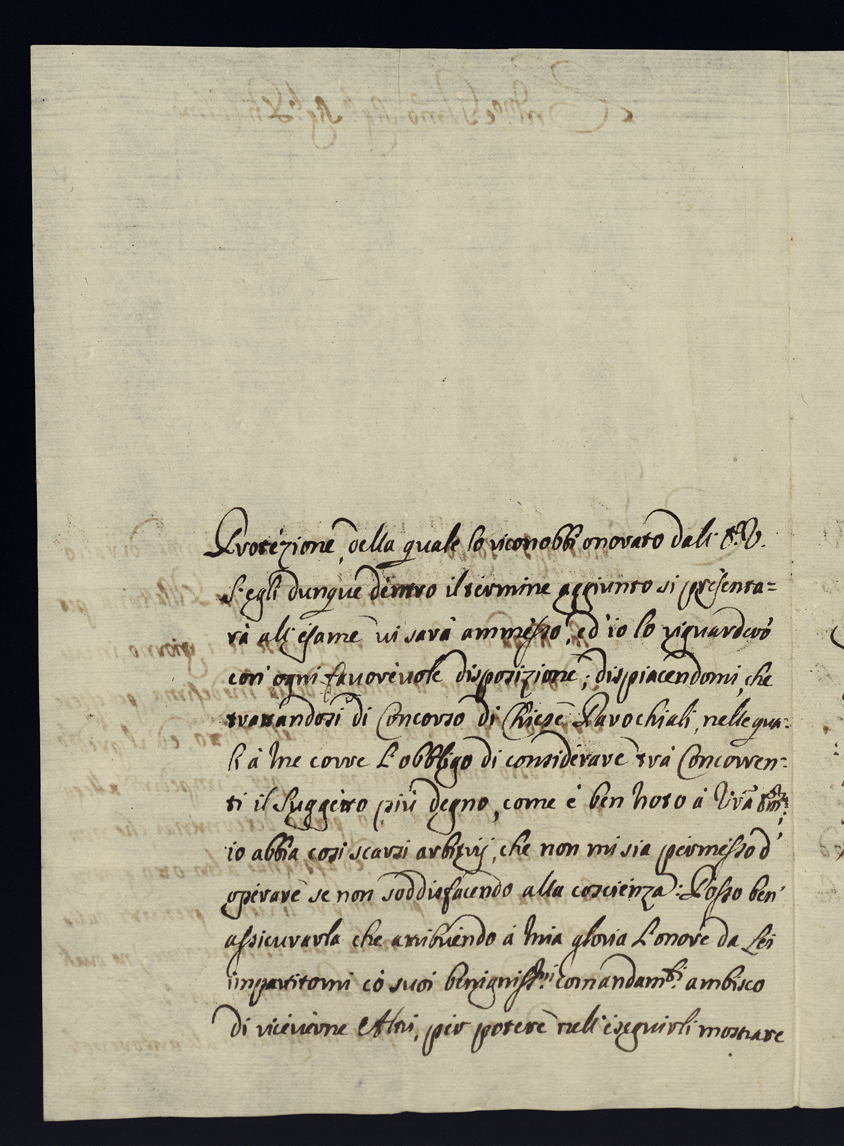 Protezione, della quale lo riconobbi onorato dall' E. V.
S'egli dunque dentro il termine aggiunto si presenta=
rà all'esame vi sarà ammesso, ed' io lo riguarderò
con ogni favorevole disposizione; dispiacendomi, che
trattandosi di Concorso di Chiese Parochiali, nelle qua=
li à me corre l'obbligo di considerare trà Concorren=
ti il Suggetto più degno, come è ben noto à Vrã Em.
io abbia così scarsi arbitrij, che non mi sia permesso d'
operare se non soddisfacendo alla coscienza: Posso ben'
assicurarla che attribuendo à mia gloria l'onore da Lei
impartitomi cò suoi benigniss.mi comandam.ti ambisco
di riceverne Altri, per potere nell'eseguirli mostrare